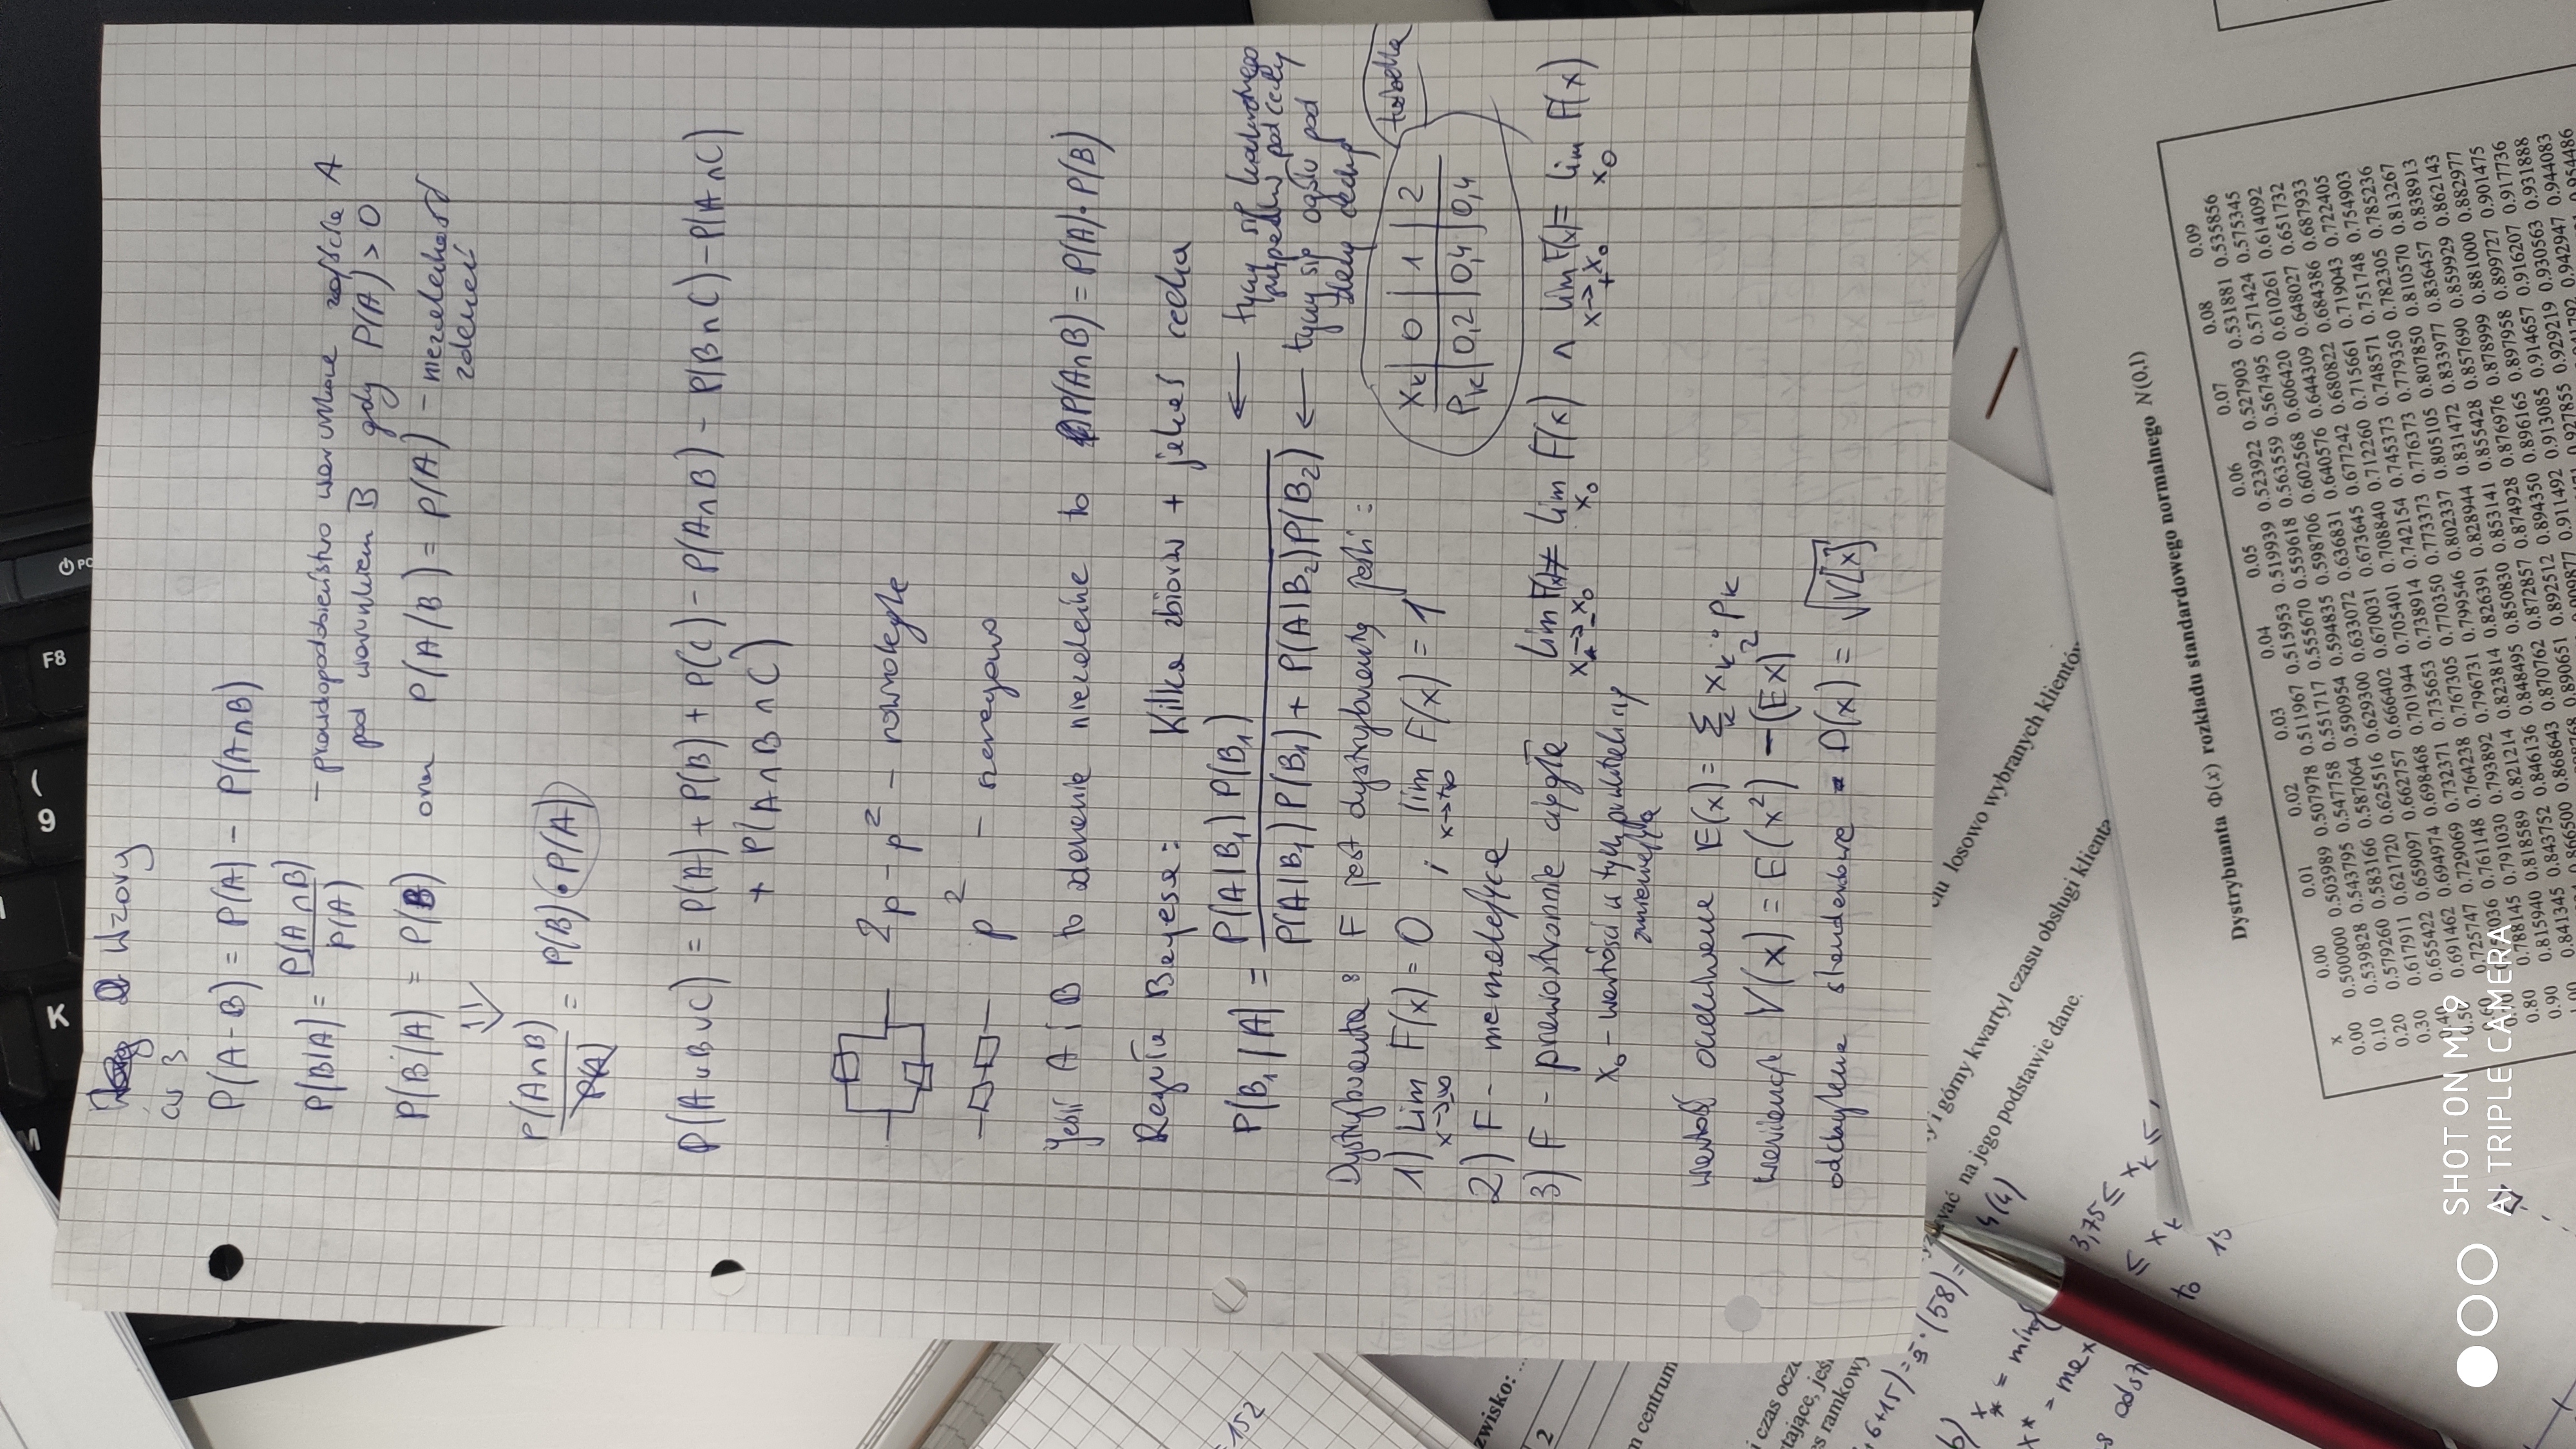 Wzory
ćw 3
P(A-B) = P(A) - P(A∩B)
P(B|A) = P(A∩B) / P(A) - prawdopodobieństwo warunkowe zajścia A
pod warunkiem B gdy P(A) > 0
P(B/A) = P(B) oraz P(A/B) = P(A) - niezależność
zdarzeń
⇓
P(A∩B) / P(A) = P(B) · P(A)
P(A∪B∪C) = P(A) + P(B) + P(C) - P(A∩B) - P(B∩C) - P(A∩C)
+ P(A∩B∩C)
2p - p² - równoległe
p² - szeregowo
Jeśli A i B to zdarzenia niezależne to P(A∩B) = P(A) · P(B)
Reguła Bayesa: Kilka zbiorów + jakaś cecha
P(B₁|A) = P(A|B₁) P(B₁) / P(A|B₁) P(B₁) + P(A|B₂) P(B₂)
← tyczy się konkretnego
przypadku pod cechy
← tyczy się ogółu pod
daną cechę
Dystrybuanta: F jest dystrybuantą jeśli:
1) lim x→-∞ F(x) = 0 ; lim x→+∞ F(x) = 1
tabelka
xk | 0 | 1 | 2
Pk | 0,2 | 0,4 | 0,4
2) F - niemalejąca
3) F - prawostronnie ciągła lim x→-x₀ F(x) ≠ lim x₀ F(x) ∧ lim x→+x₀ F(x) = lim x₀ F(x)
x₀ - wartości w tych punktach się
zmieniają
wartość oczekiwana E(x) = Σk xk · pk
wariancja V(x) = E(x²) - (Ex)²
odchylenie standardowe - D(x) = √V[x]
=152
zwisko: ...
2
m centrum
i czas ocze
tające, jeś
es ramkowy
+6+15) = · (58) =
4(4)
b) x* = min
x* = max
3,75 ≤ xk ≤
≤ xk
to
15
y i górny kwartyl czasu obsługi klienta
ciu losowo wybranych klientów
wać na jego podstawie dane.
Dystrybuanta Φ(x) rozkładu standardowego normalnego N(0,1)
x 0.00 0.01 0.02 0.03 0.04 0.05 0.06 0.07 0.08 0.09
0.00 0.500000 0.503989 0.507978 0.511967 0.515953 0.519939 0.523922 0.527903 0.531881 0.535856
0.10 0.539828 0.543795 0.547758 0.551717 0.555670 0.559618 0.563559 0.567495 0.571424 0.575345
0.20 0.579260 0.583166 0.587064 0.590954 0.594835 0.598706 0.602568 0.606420 0.610261 0.614092
0.30 0.617911 0.621720 0.625516 0.629300 0.633072 0.636831 0.640576 0.644309 0.648027 0.651732
0.40 0.655422 0.659097 0.662757 0.666402 0.670031 0.673645 0.677242 0.680822 0.684386 0.687933
0.50 0.691462 0.694974 0.698468 0.701944 0.705401 0.708840 0.712260 0.715661 0.719043 0.722405
0.60 0.725747 0.729069 0.732371 0.735653 0.738914 0.742154 0.745373 0.748571 0.751748 0.754903
0.761148 0.764238 0.767305 0.770350 0.773373 0.776373 0.779350 0.782305 0.785236
0.80 0.788145 0.791030 0.793892 0.796731 0.799546 0.802337 0.805105 0.807850 0.810570 0.813267
0.90 0.815940 0.818589 0.821214 0.823814 0.826391 0.828944 0.831472 0.833977 0.836457 0.838913
1.00 0.841345 0.843752 0.846136 0.848495 0.850830 0.853141 0.855428 0.857690 0.859929 0.862143
0.866500 0.868643 0.870762 0.872857 0.874928 0.876976 0.878999 0.881000 0.882977
0.890651 0.892512 0.894350 0.896165 0.897958 0.899727 0.901475
0.911492 0.913085 0.914657 0.916207 0.917736
0.927855 0.929219 0.930563 0.931888
0.942947 0.944083
K
9 (
F8
SHOT ON MI 9
AI TRIPLE CAMERA